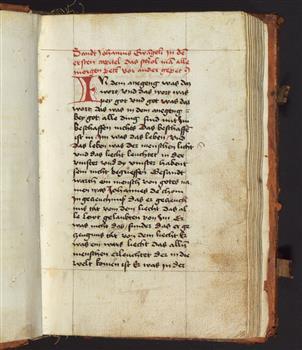 Sandt Johannes Ewangeli in de
ersten capitel das sprich man alle
morgen
IN dem anegeng was daz
wort vnd das wort was
per got vnd got was das
wort das was in dem anegeng
ber got alle ding sind mit im
beschaffen nichts das beschaffe
ist in Im was das leben vnd
das leben was der menschen liecht
vnd das liecht leuchtet in der
vinster vnd dy vinster habent
sein nicht begriffen Gesandt
warth ein mensch von gotes na
men was Johannes de chom
in gezeuchnus das er gezeuch
nus tät von dem liecht das al
le lewt gelaubten von Im Er
was nicht das sunder das er ge
zeugnus tät von dem liecht Es
was ein wars liecht das alln
menschen erleuchtet der in die
welt komen ist Er was in der